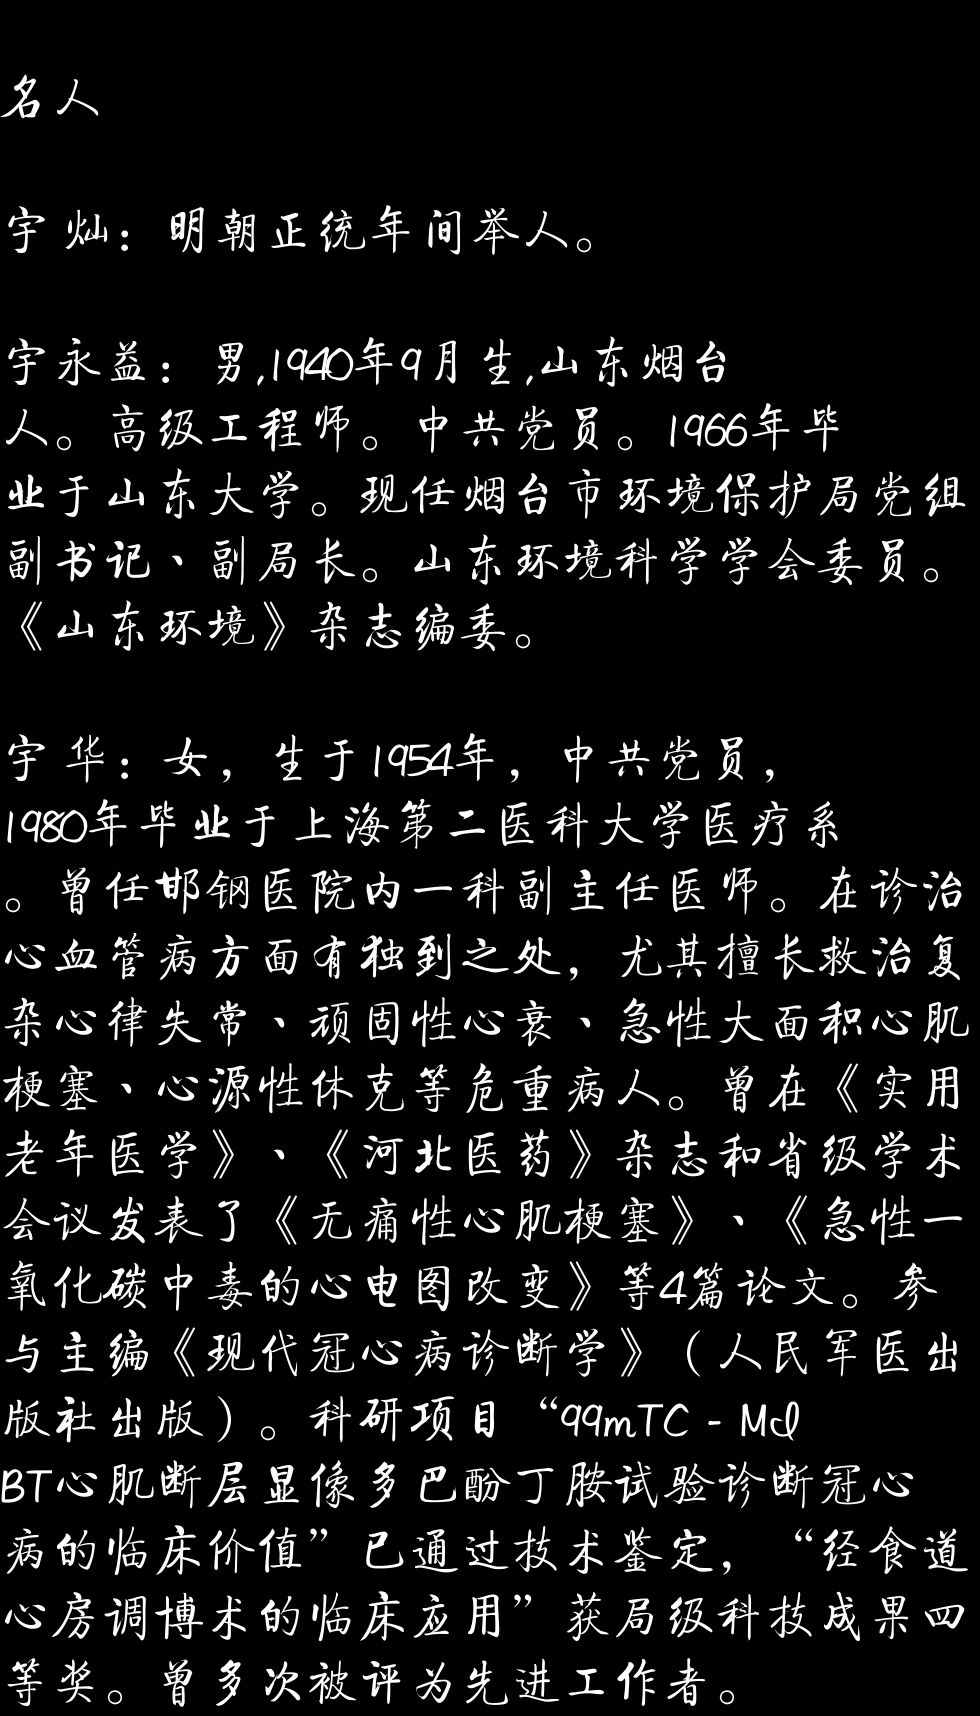 名人
宇 灿：明朝正统年间举人。
宇永益：男,1940年9月生,山东烟台
人。高级工程师。中共党员。1966年毕
业于山东大学。现任烟台市环境保护局党组
副书记、副局长。山东环境科学学会委员。
《山东环境》杂志编委。
宇 华：女，生于1954年，中共党员，
1980年毕业于上海第二医科大学医疗系
。曾任邯钢医院内一科副主任医师。在诊治
心血管病方面有独到之处，尤其擅长救治复
杂心律失常、顽固性心衰、急性大面积心肌
梗塞、心源性休克等危重病人。曾在《实用
老年医学》、《河北医药》杂志和省级学术
会议发表了《无痛性心肌梗塞》、《急性一
氧化碳中毒的心电图改变》等4篇论文。参
与主编《现代冠心病诊断学》（人民军医出
版社出版）。科研项目“99mTC－MI
BT心肌断层显像多巴酚丁胺试验诊断冠心
病的临床价值”已通过技术鉴定，“经食道
心房调博术的临床应用”获局级科技成果四
等奖。曾多次被评为先进工作者。